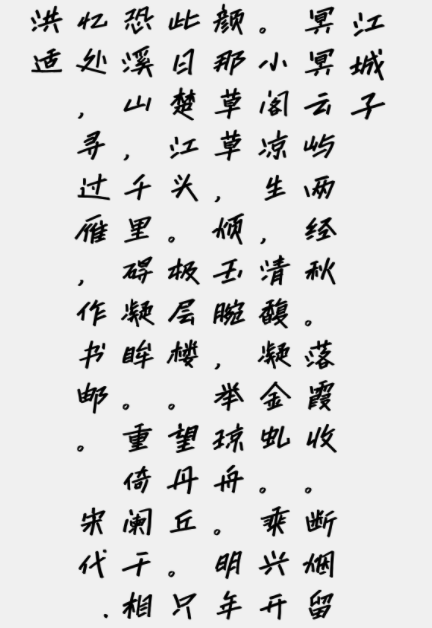 江城子
冥冥云屿两经秋。落霞收。断烟留
。小阁凉生,清馥凝金虬。乘兴开
颜那草草,烦玉腕,举琼舟。明年
此日楚江头。极层楼。望丹丘。只
恐溪山,千里碍凝眸。重倚阑干相
忆处,寻过雁,作书邮。 宋代.
洪适